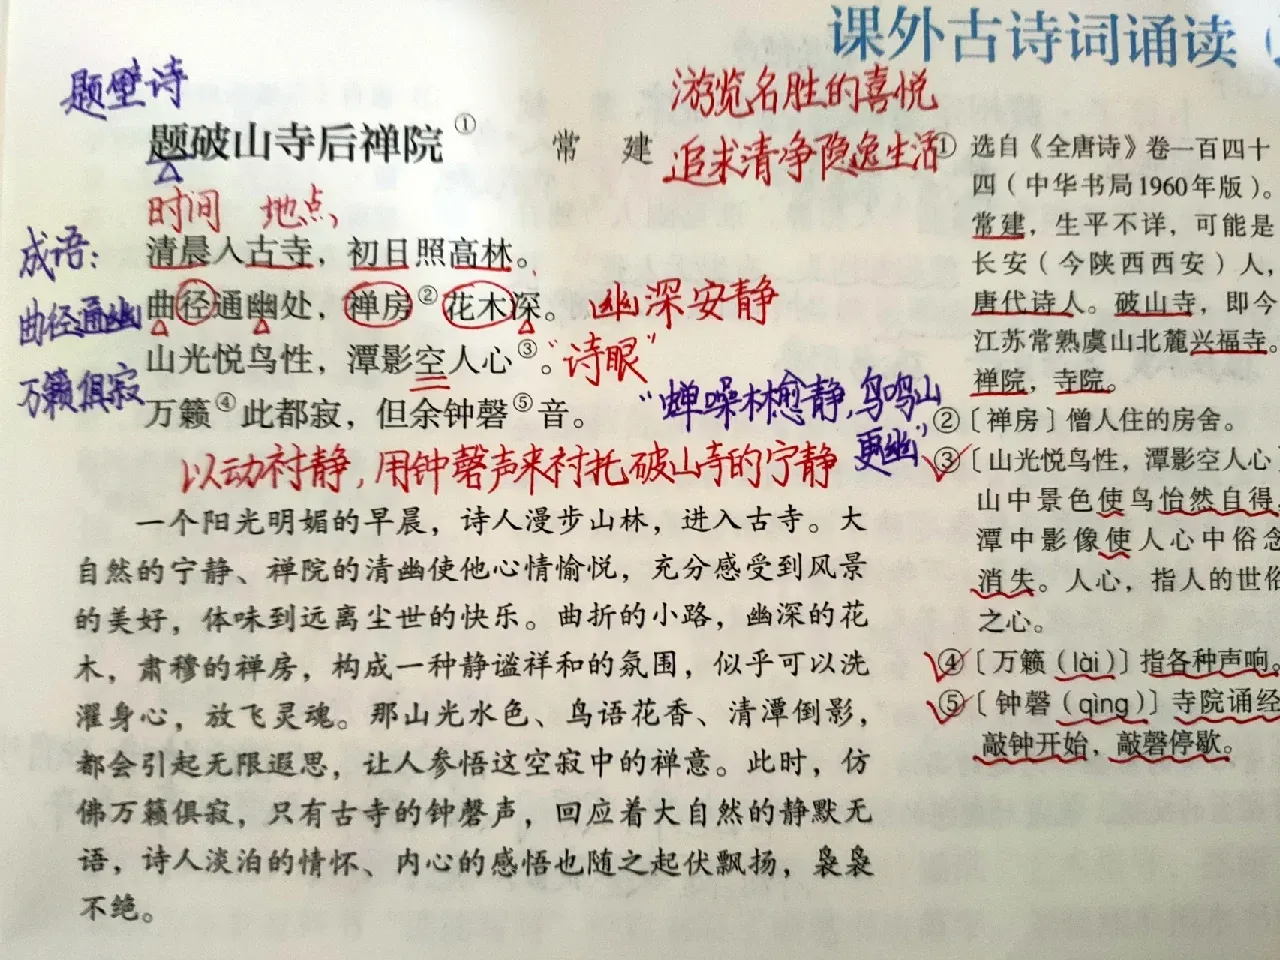 课外古诗词诵读
题壁诗
游览名胜的喜悦
题破山寺后禅院①
常 建
追求清净隐逸生活
时间 地点
成语：
清晨入古寺，初日照高林。
曲径通幽
曲径通幽处，禅房②花木深。
幽深安静
山光悦鸟性，潭影空人心③。
“诗眼”
万籁俱寂
万籁④此都寂，但余钟磬⑤音。
“蝉噪林愈静，鸟鸣山
更幽”
以动衬静，用钟磬声来衬托破山寺的宁静
一个阳光明媚的早晨，诗人漫步山林，进入古寺。大
自然的宁静、禅院的清幽使他心情愉悦，充分感受到风景
的美好，体味到远离尘世的快乐。曲折的小路，幽深的花
木，肃穆的禅房，构成一种静谧祥和的氛围，似乎可以洗
濯身心，放飞灵魂。那山光水色、鸟语花香、清潭倒影，
都会引起无限遐思，让人参悟这空寂中的禅意。此时，仿
佛万籁俱寂，只有古寺的钟磬声，回应着大自然的静默无
语，诗人淡泊的情怀、内心的感悟也随之起伏飘扬，袅袅
不绝。
① 选自《全唐诗》卷一百四十
四（中华书局1960年版）。
常建，生平不详，可能是
长安（今陕西西安）人，
唐代诗人。破山寺，即今
江苏常熟虞山北麓兴福寺。
禅院，寺院。
②〔禅房〕僧人住的房舍。
③〔山光悦鸟性，潭影空人心〕
山中景色使鸟怡然自得，
潭中影像使人心中俗念
消失。人心，指人的世俗
之心。
④〔万籁（lài）〕指各种声响。
⑤〔钟磬（qìng）〕寺院诵经，
敲钟开始，敲磬停歇。